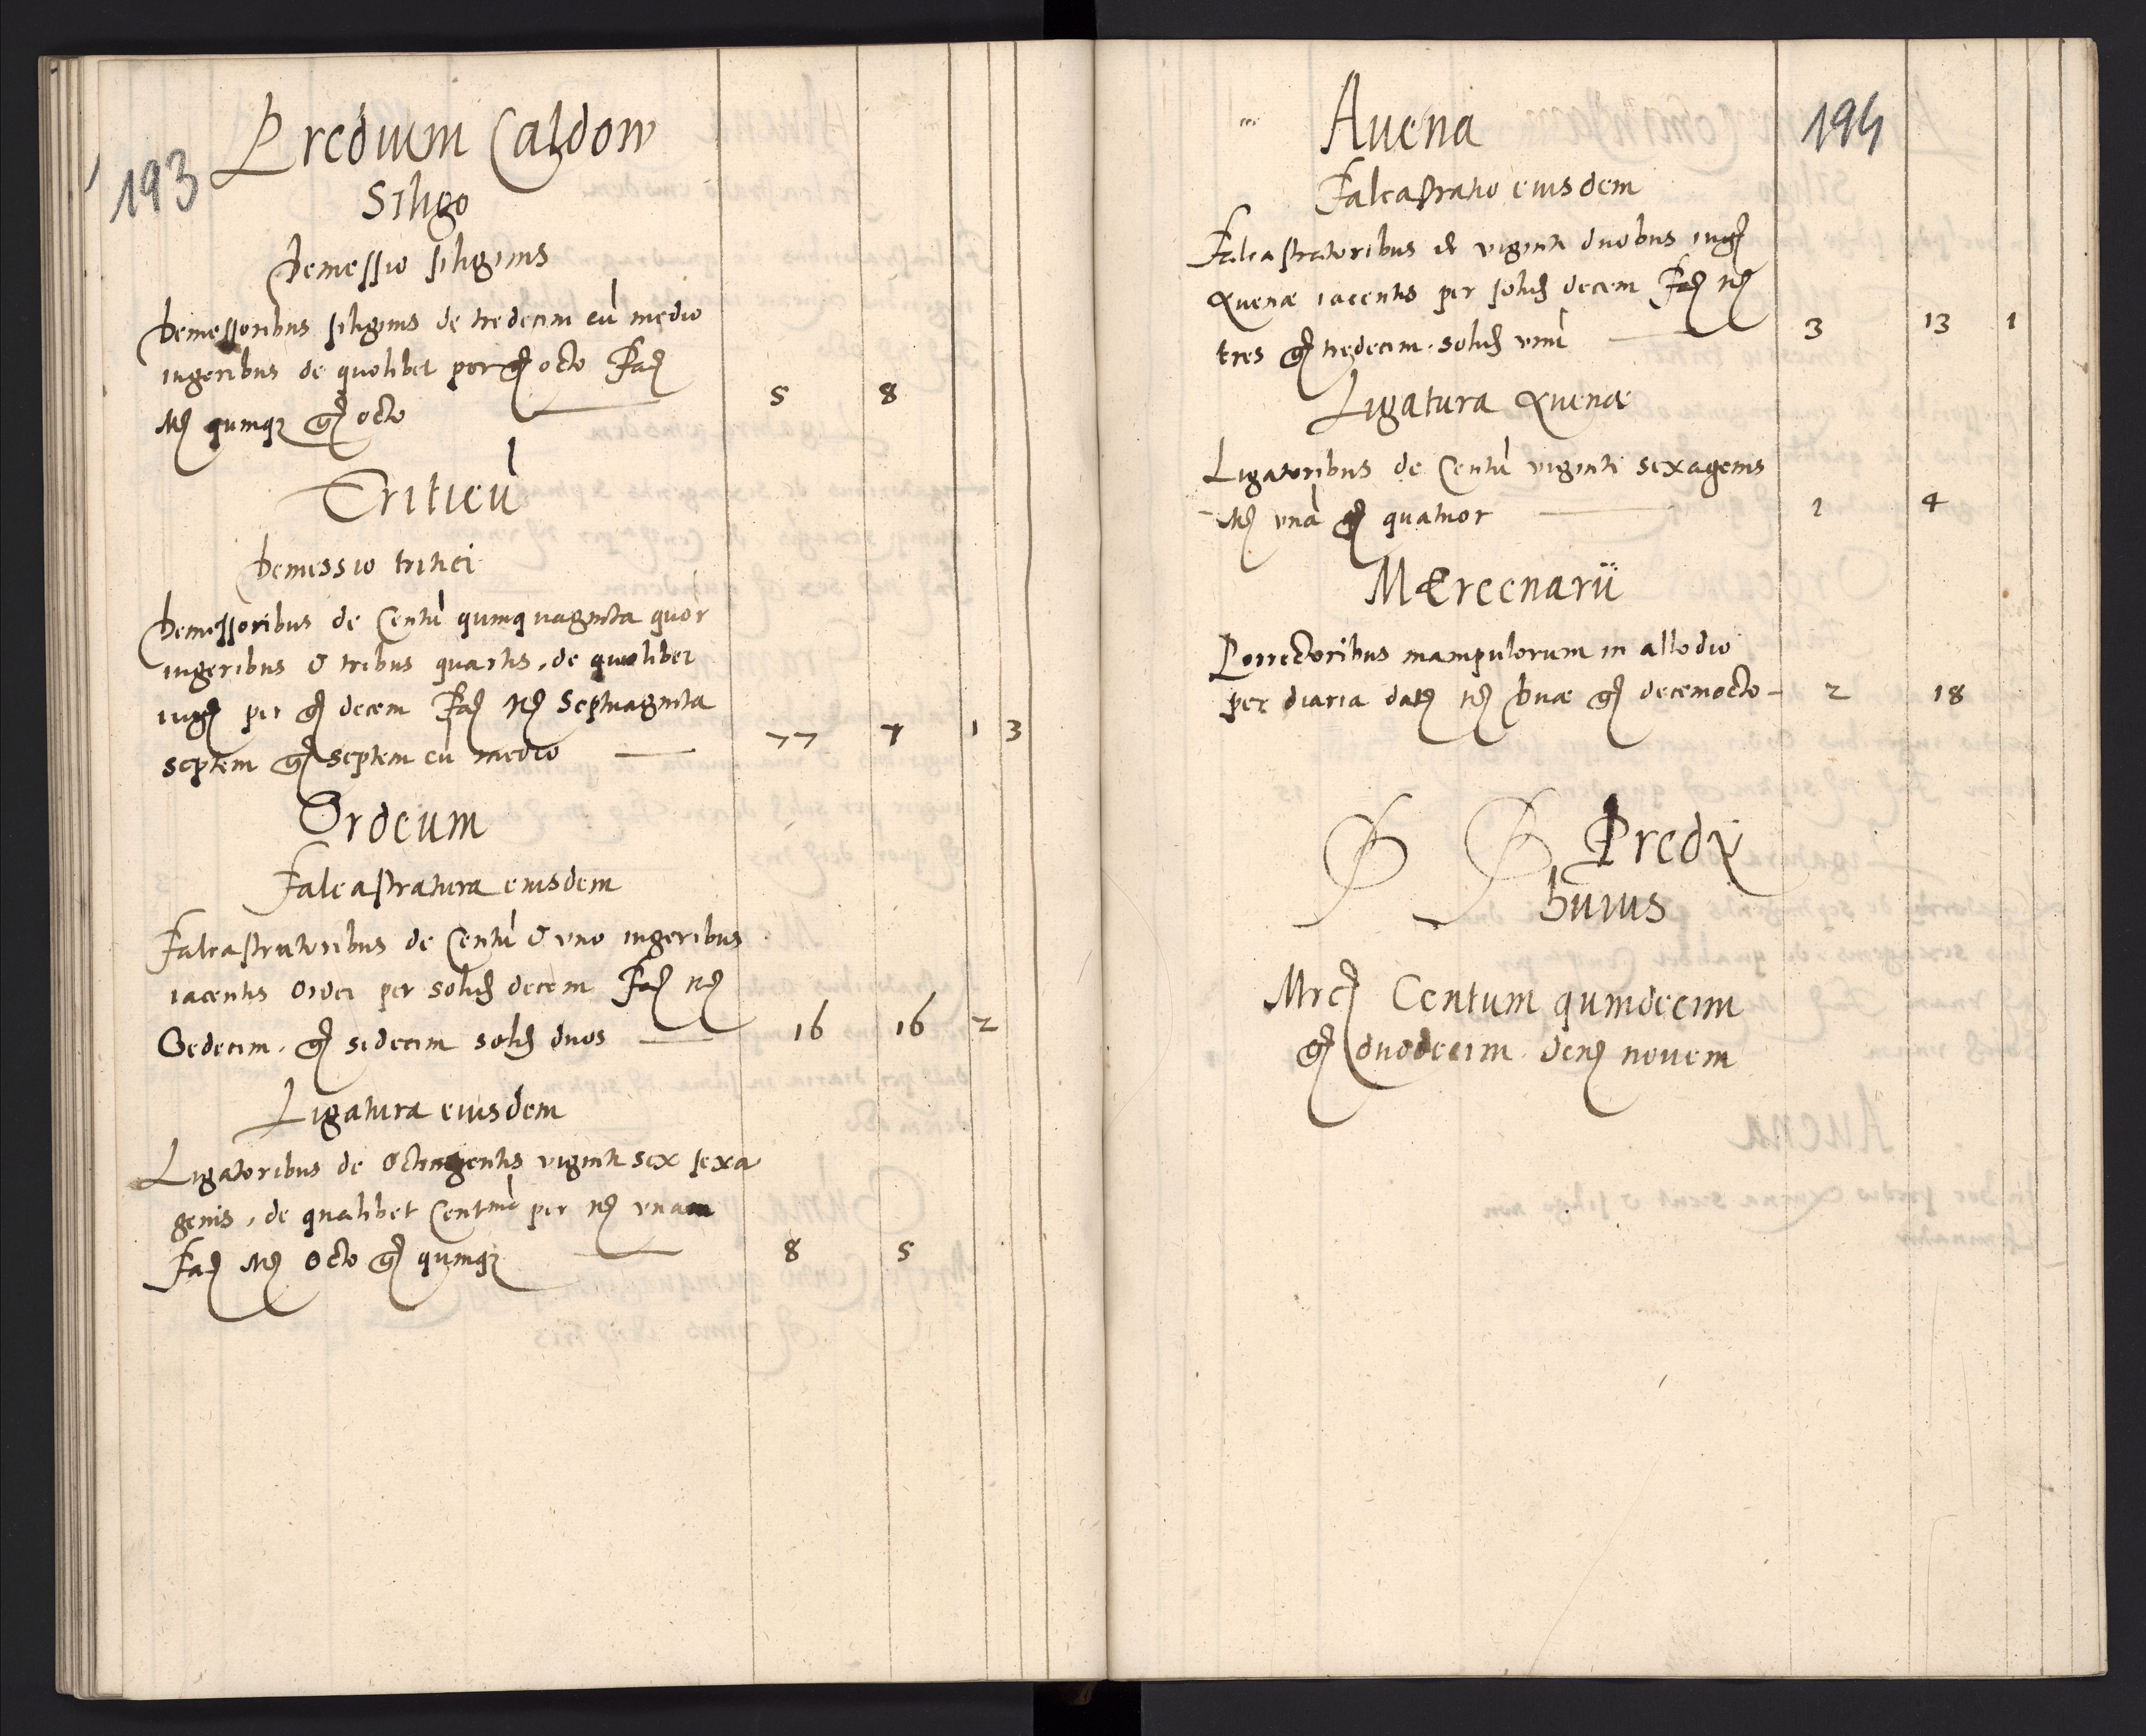 193
Predium Caldow
Siligo
Demessio siliginis
Demessoribus siliginis de tredecim cũ medio
iugeribus de quolibet per gſ octo Facſ 5 8
Mſ quinqꝫ gſ octo
Triticũ
Demessio tritici
Demessoribus de Centũ quinquaginta quor
iugeribus & tribus quartis, de quolibet
iugſ per gſ decem Facſ Mſ Septuaginta
septem gſ septem cũ medio 77 7 1 3
Ordeum
Falcastratura eiusdem
Falcastratoribus de Centũ & vno iugeribus
iacentis Ordei per solidſ decem Facſ Mſ
Sedecim, gſ sedecim solidſ duos 16 16 2
Ligatura eiusdem
Ligatoribus de Octingentis viginti sex sexa
genis, de qualibet Centũa per Mſ vnam
Facſ Mſ Octo gſ quinqꝫ 8 5
194
Auena
Falcastratio eiusdem
Falcastratoribus de viginti duobus iugſ
Auenæ iacentis per solidſ decem Facſ Mſ
tres gſ tredecim solidſ vnũ 3 13 1
Ligatura Auenæ
Ligatoribus de Centũ viginti sexagenis
Mſ vnã gſ quatuor 1 4
Mercenarii
Porrectoribus manipulorum in allodio
per diaria datſ Mſ duæ gſ decemocto 2 18
Predy
huius
Mrcſ Centum quindecim
gſ duodecim denſ nouem